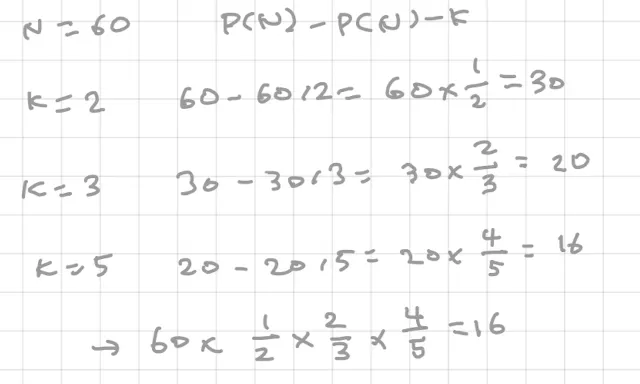 N = 60 P(N) - P(N) - K
K = 2 60 - 60 / 2 = 60 × 1/2 = 30
K = 3 30 - 30 / 3 = 30 × 2/3 = 20
K = 5 20 - 20 / 5 = 20 × 4/5 = 16
→ 60 × 1/2 × 2/3 × 4/5 = 16